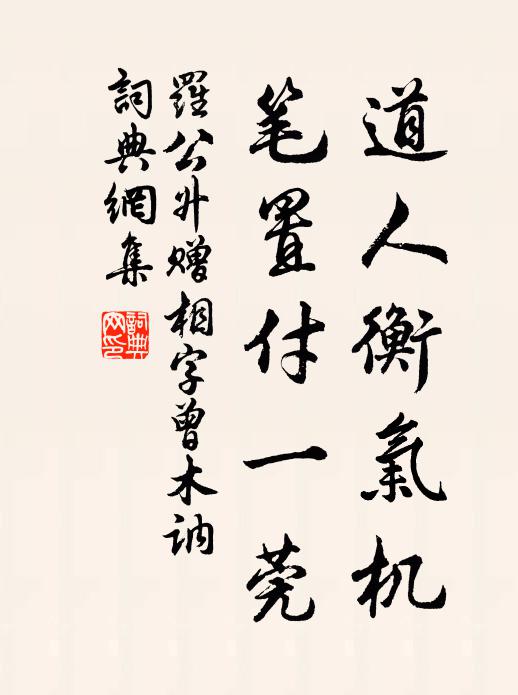 道人衡氣机
笔置付一莞
羅公升赠相字曾木訥
詞典網集
詞典網印